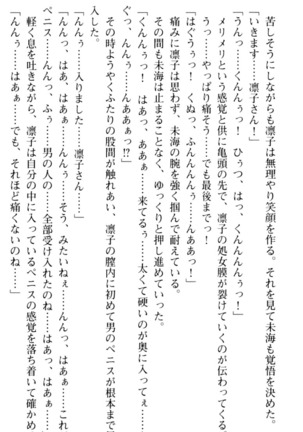 苦しそうにしながらも凛子は無理やり笑顔を作る。それを見て未海も覚悟を決めた。
「いきます、凛子さん！」
「うんっ……くんんぅっ！　ひぅっ、はっ、くんんんんぅっ！」
メリメリという感触と供に亀頭の先で、凛子の処女膜が裂けていくのが伝わってくる。
うっ……やっぱり痛そう……でも最後までっ！
「はぐぅぅっ！　くっ、ぬっ、ふんんんんぅっ……んああっ！」
痛みに凛子は思わず、未海の腕を強く掴んで耐えている。
その間も未海は止まることなく、ゆっくりと押し進めていった。
「くんんぅっ！　はあっ、ああぁっ……来てるぅ……太くて硬いのが奥に入ってぇ……
くんぅっ、んんぅ……んああぁっっ⁉」
その時ようやくふたりの股間が触れあい、凛子の膣内に初めて男のペニスが根本まで
入した。
「んんぅ……入りました……凛子さん……」
「んんっ、はあ、はぁぁ……んんぅ……そう、みたいねぇ……んんっ、はあぁ……これ
ペニス……んんっ、ふぅ……男の人の……全部受け入れたのね……はあっ、はああぁ」
軽く息を吐きながら、凛子は自分の中に入っているペニスの感覚を落ち着いて確かめ
「んんぅ……はあぁ……でも、それほど痛くないのね……」